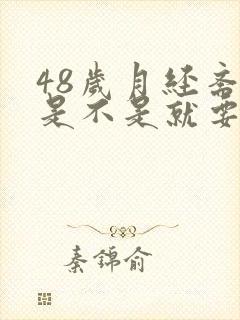 48岁月经斋
是不是就要
秦锦俞